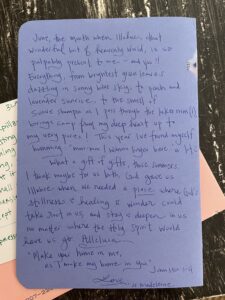 June, the month when Illahee, that
wonderful bit of heavenly world, is so
palpably present to me - and you!!
Everything, from brightest glue leaves
dazzling in sunny blue sky, to peach and
lavender sunrise, to the smell of
Suave shampoo as I pass through the
brings every fiber my deep heart up to
my very pores! This year I've found myself
humming "mmm I wanna linger here a bit.
What a gift of gifts, those summers.
I think maybe for us both, God gave us
Illahee when we needed a place where God's
stillness & healing & wonder could
take root in us and stay & deepen in us
no matter where the Holy Spirit would
have us go. Alleluia.
"Make your home in me,
as I make my home in you"
John 15:4
Love,
Madeleine